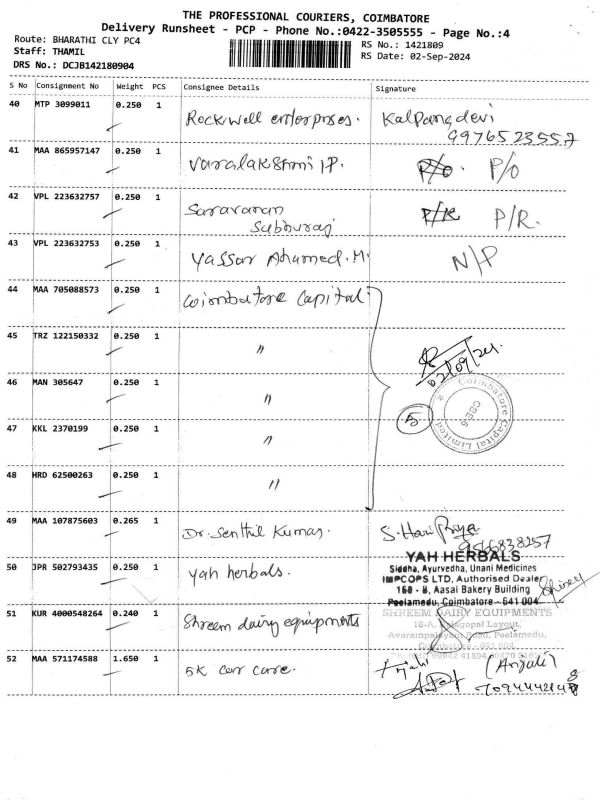 THE PROFESSIONAL COURIERS, COIMBATORE
Delivery Runsheet - PCP - Phone No.:0422-3505555 - Page No.:4
Route: BHARATHI CLY PC4
Staff: THAMIL
DRS No.: DCJB142180904
RS No.: 1421809
RS Date: 02-Sep-2024
S No Consignment No Weight PCS Consignee Details Signature
40 MTP 3099011 0.250 1 Rockwell enterprises. Kalpanadevi
9976523557
41 MAA 865957147 0.250 1 Varalakshmi P. P/O
42 VPL 223632757 0.250 1 Saravanan P/R.
Subburaj
43 VPL 223632753 0.250 1 Yassar Ahamed.M. N/P
44 MAA 705088573 0.250 1 Coimbatore Capital
45 TRZ 122150332 0.250 1 "
02/09/24
46 MAN 305647 0.250 1 "
Coimbatore Capital Limited
CBE-6
5
47 KKL 2370199 0.250 1 "
48 HRD 62500263 0.250 1 "
49 MAA 107875603 0.265 1 Dr. Senthil Kumar. S. Hari Priya
9566838257
50 JPR 502793435 0.250 1 yah herbals.
YAH HERBALS
Siddha, Ayurvedha, Unani Medicines
IMPCOPS LTD, Authorised Dealer
160 - B, Aasai Bakery Building
Peelamedu, Coimbatore - 641 004
51 KUR 4000548264 0.240 1 Shreem dairy equipments
SHREEM DAIRY EQUIPMENTS
16-A, Layout,
Avarampalayam Road, Peelamedu,
Coimbatore - 641 004
52 MAA 571174588 1.650 1 5K car care. Anjali (Anjali)